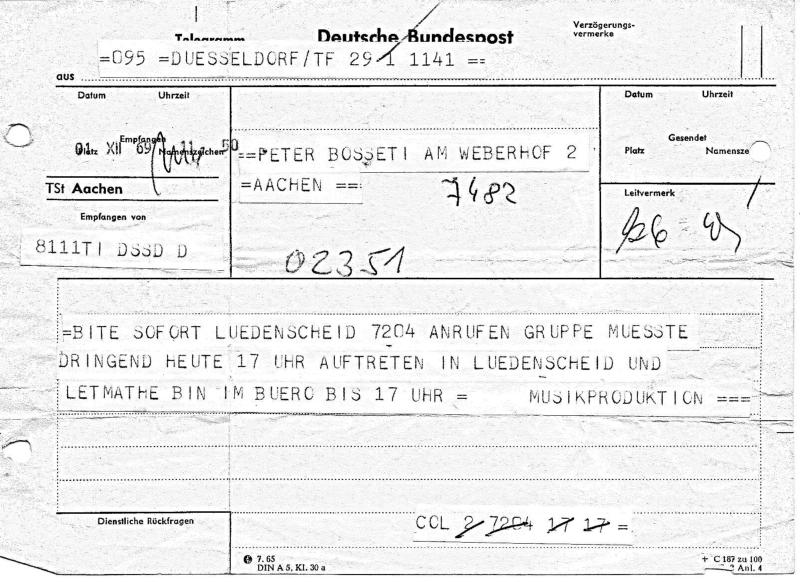 Telegramm Deutsche Bundespost Verzögerungs-
vermerke
=095 =DUESSELDORF/TF 29 1 1141 ==
aus
Datum Uhrzeit
Empfangen
01 XII 69 50
Platz Namenszeichen
TSt Aachen
Empfangen von
8111TI DSSD D
==PETER BOSSETI AM WEBERHOF 2
=AACHEN ===
7482
02351
Datum Uhrzeit
Gesendet
Platz Namensze
Leitvermerk
=BITE SOFORT LUEDENSCHEID 7204 ANRUFEN GRUPPE MUESSTE
DRINGEND HEUTE 17 UHR AUFTRETEN IN LUEDENSCHEID UND
LETMATHE BIN IM BUERO BIS 17 UHR = MUSIKPRODUKTION ===
COL 2 7204 17 17 =
Dienstliche Rückfragen
7.65
DIN A 5, Kl. 30 a
+ C 187 zu 100
Anl. 4